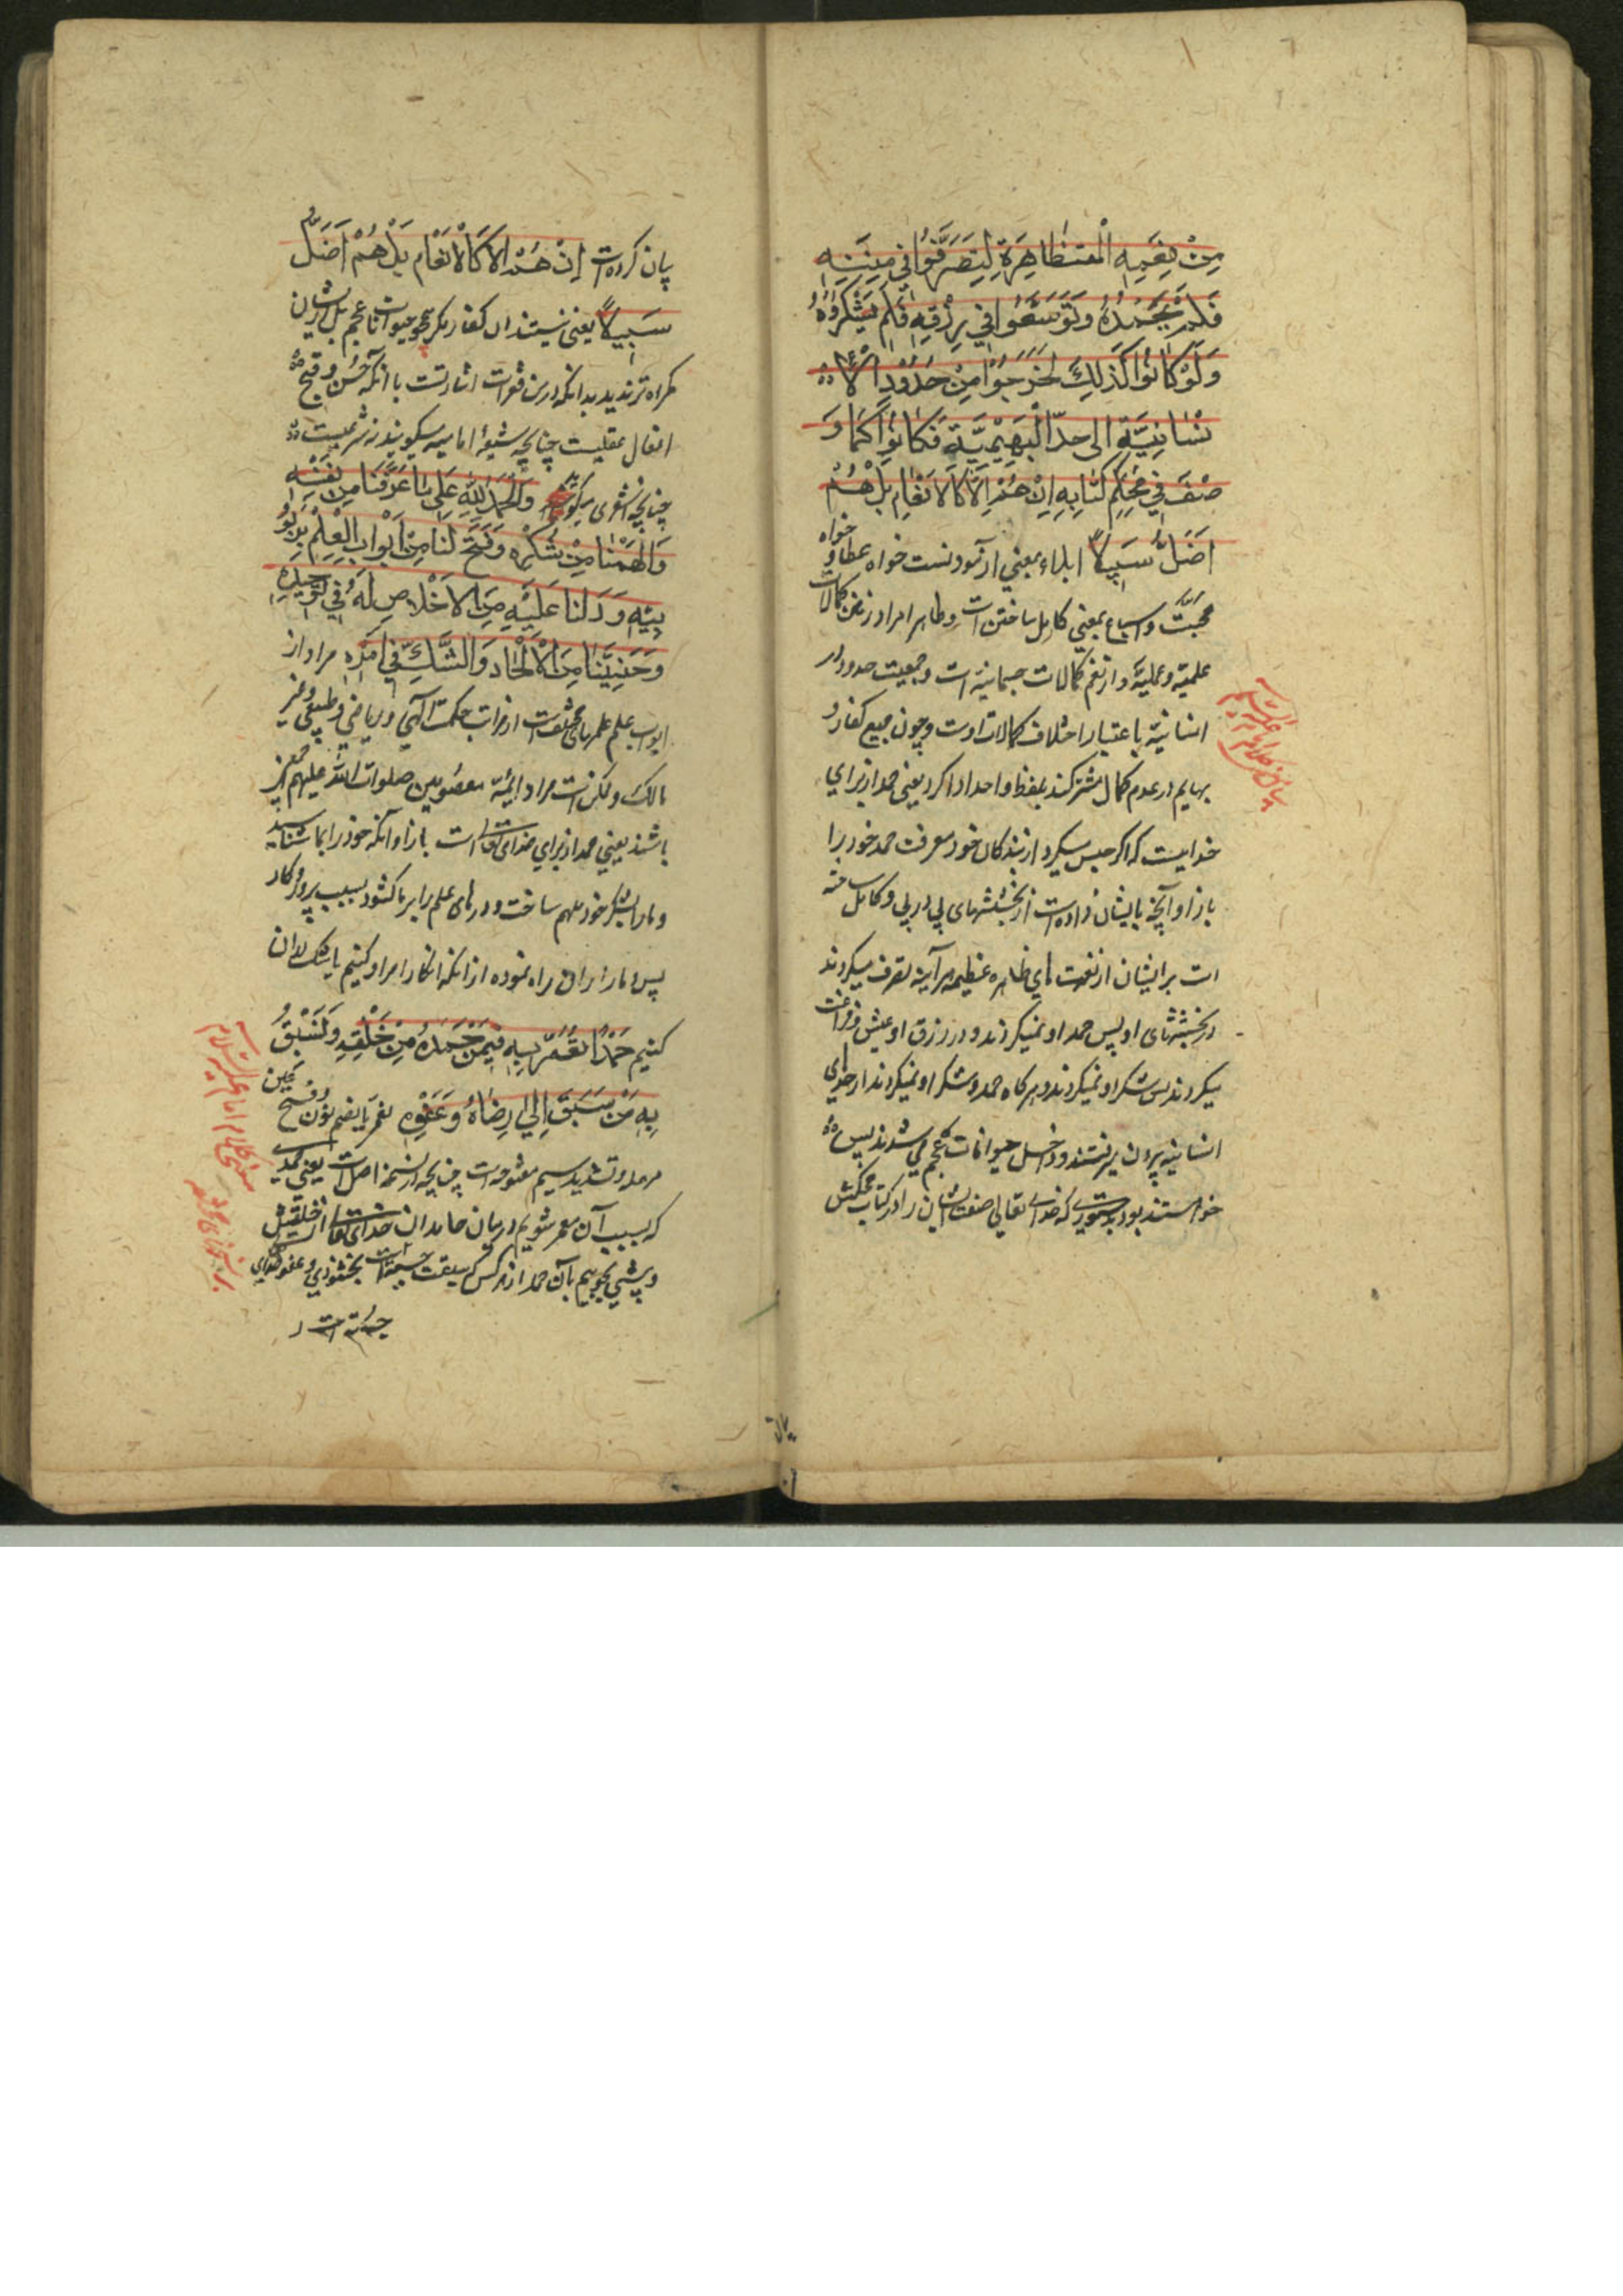 مِنْ نِعَمِهِ الْمُتَظَاهِرَةِ لِتَصَرَّفُوا فِي مِنَنِهِ
فَلَمْ يَحْمَدُوهُ وَتَوَسَّعُوا فِي رِزْقِهِ فَلَمْ يَشْكُرُوهُ
وَلَوْ كَانُوا كَذَلِكَ لَخَرَجُوا مِنْ حُدُودِ الْاِ
نْسَانِيَّةِ اِلى حَدِّ الْبَهِيْمِيَّةِ فَكَانُوا كَمَا وَ
صَفَ فِي مُحْكَمِ كِتَابِهِ اِنْ هُمْ اِلَّا كَالْاَنْعَامِ بَلْ هُمْ
اَضَلُّ سَبِيلاً ابلاء بمعنی ازمودنست خواه عطا و خواه
محبت و اسباغ بمعنی کامل ساختن است و ظاهرا مراد از منن کمالات
علمیّه و عملیّه و از نعم کمالات جسمانیه است و جمعیت حدود
انسانیّه باعتبار اختلاف کمالات اوست و چون جمیع کفار و
بهایم در عدم کمال مشترکند بلفظ واحد ادا کرد یعنی حمد از برای
خداییست که اگر حبس میکرد از بندگان خود معرفت حمد خود را
بازاء آنچه بایشان داده است از بخششهای پی در پی و کامل ساخته
است بر ایشان از نعمت های ظاهره عظیمه هر آینه تصرف میکردند
در بخششهای او پس حمد او نمیکردند و در رزق او عیش و فراغت
میکردند پس شکر او نمیکردند و هر گاه حمد و شکر او نمیکردند از حدهای
انسانیه بیرون میرفتند و داخل حیوانات عجم می شدند پس
خواستند بود بدستوری که خدای تعالی صفت ایشان را در کتاب محکمش
بیان کرده است اِنْ هُمْ اِلَّا كَالْاَنْعَامِ بَلْ هُمْ اَضَلُّ
سَبِيلاً یعنی نیستند ان کفار مگر همچو حیوانات عجم بل ایشان
گمراه ترند بدانکه درین فقرات اشارتست بانکه حسن و قبح
افعال عقلیست چنانچه شیعهٔ امامیه میگویند نه شرعیست
چنانچه اشعری میگوید وَالْحَمْدُ لِلّٰهِ عَلَى مَا عَرَّفَنَا مِنْ نَفْسِهِ
وَاَلْهَمَنَا مِنْ شُكْرِهِ وَفَتَحَ لَنَا مِنْ اَبْوَابِ الْعِلْمِ بِرُبُوْ
بِيَّتِهِ وَدَلَّنَا عَلَيْهِ مِنَ الْاِخْلَاصِ لَهُ فِي تَوْحِيدِهِ
وَجَنَّبَنَا مِنَ الْاِلْحَادِ وَالشَّكِّ فِي اَمْرِهِ مراد از
ابواب علم علمهای مختلف است از مراتب حکمت الهی و ریاضی و طبیعی و غیر
ذالک و ممکن است مراد ایمّه معصومین صلوات الله علیهم اجمعین
باشند یعنی حمد از برای خدای تعالی است بازاء آنکه خود را بما شناسانید
و ما را بشکر خود ملهم ساخت و درهای علم را بر ما کشود بسبب پروردگار
کنیم حَمْدًا نُعَمَّرُ بِهِ فِيمَنْ حَمِدَهُ مِنْ خَلْقِهِ وَنَسْبِقُ
بِهِ مَنْ سَبَقَ اِلَى رِضَاهُ وَعَفْوِهِ نعمر بضم نون و فتح عین
مهمله و تشدید میم مفتوحه است چنانچه از نسخهٔ اصل است یعنی حمدی
که بسبب آن معمر شویم در میان حامدان خدای تعالی از خلقش
و پیشی بجوییم بآن حمد از هر کس که سبقت بخشنودی و عفو خدای
جسته است